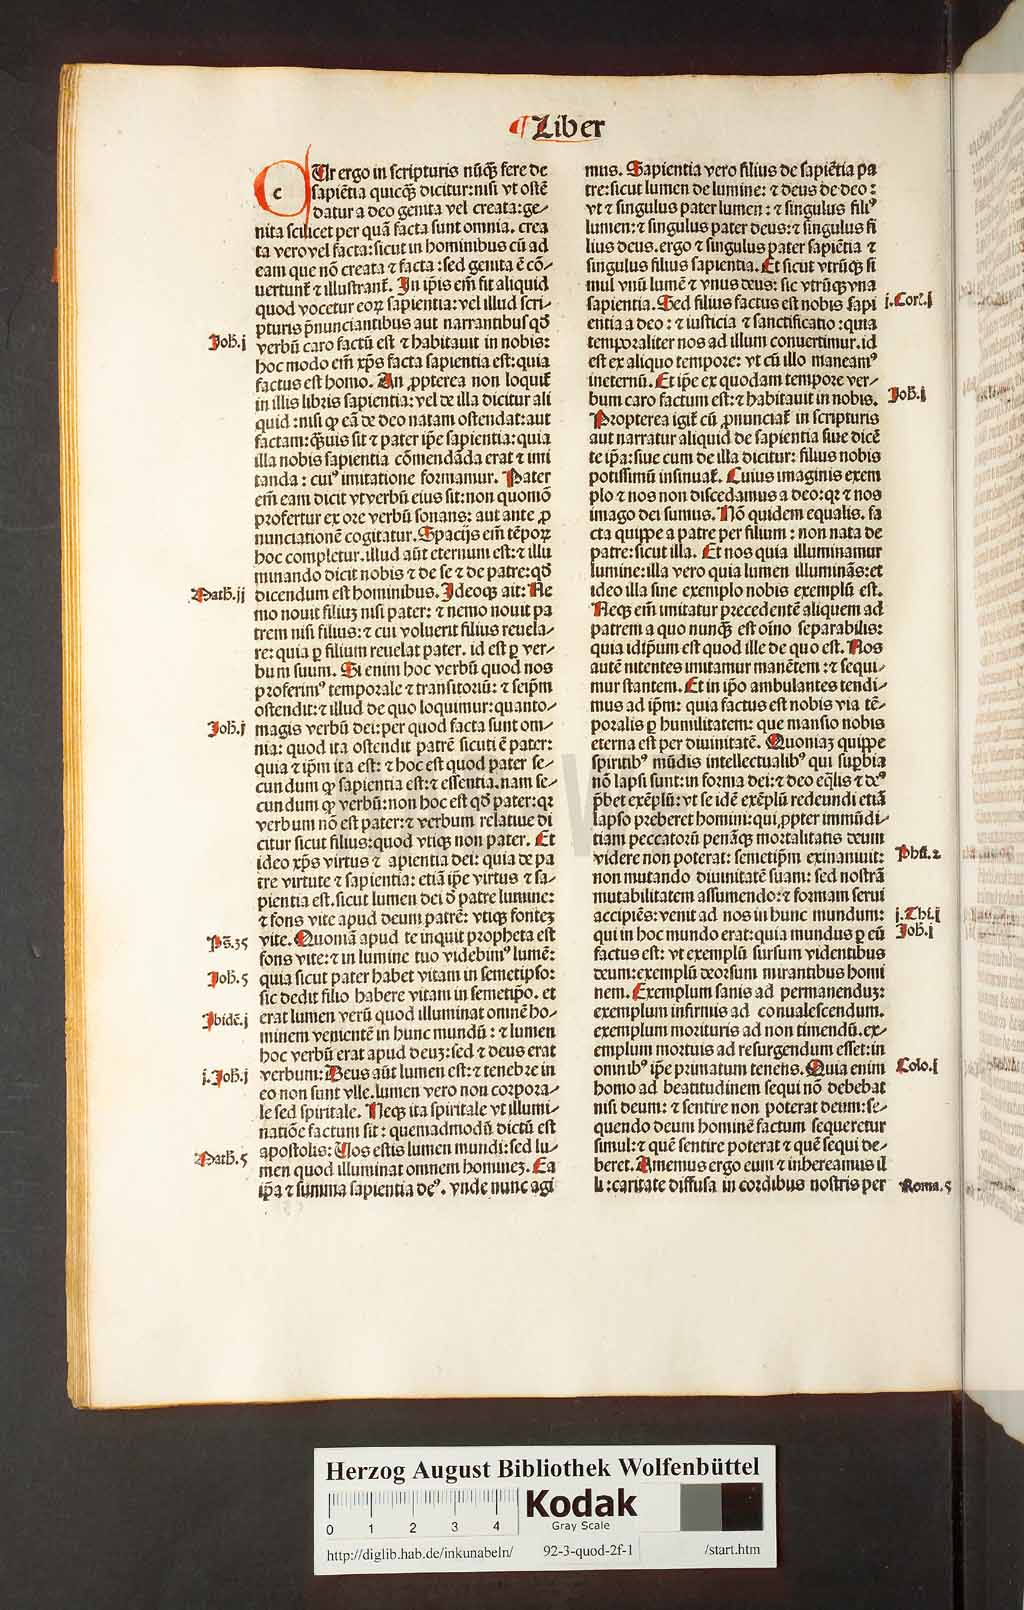 ¶ Liber
c
Ur ergo in scripturis nũqȝ fere de
sapiẽtia quicqȝ dicitur:nisi vt ostẽ
datur a deo genita vel creata:ge⸗
nita scilicet per quã facta sunt omnia. crea
ta vero vel facta:sicut in hominibus cũ ad
eam que nõ creata ⁊ facta:sed genita ẽ cõ⸗
uertunt̃ ⁊ illustrant̃. In ip̃is em̃ fit aliquid
quod vocetur eoꝝ sapientia:vel illud scri⸗
pturis p̃nunciantibus aut narrantibus qđ
Joh̃.j
verbũ caro factũ est ⁊ habitauit in nobis:
hoc modo em̃ xp̃s facta sapientia est:quia
factus est homo. An ꝓpterea non loquit̃
in illis libris sapientia:vel de illa dicitur ali
quid:nisi ꝙ eã de deo natam ostendat:aut
factam:q̃uis sit ⁊ pater ip̃e sapientia:quia
illa nobis sapientia cõmendãda erat ⁊ imi
tanda: cuiꝰ imitatione formamur. Pater
em̃ eam dicit vt verbũ eius sit:non quomõ
profertur ex ore verbũ sonans: aut ante ꝓ
nunciationẽ cogitatur. Spacijs em̃ tẽpoꝝ
hoc completur. illud aũt eternum est:⁊ illu
minando dicit nobis ⁊ de se ⁊ de patre:qđ
Math̃.ij
dicendum est hominibus. Ideoqȝ ait: Ne
mo nouit filiuȝ nisi pater: ⁊ nemo nouit pa
trem nisi filius:⁊ cui voluerit filius reuela⸗
re: quia ꝑ filium reuelat pater. id est ꝑ ver⸗
bum suum. Si enim hoc verbũ quod nos
proferimꝰ temporale ⁊ transitoriũ: ⁊ seip̃m
ostendit:⁊ illud de quo loquimur:quanto⸗
Joh̃.j
magis verbũ dei:per quod facta sunt om⸗
nia: quod ita ostendit patrẽ sicuti ẽ pater:
quia ⁊ ip̃m ita est: ⁊ hoc est quod pater se⸗
cundum ꝙ sapientia est:⁊ essentia.nam se⸗
cundum ꝙ verbũ:non hoc est qđ pater:qr
verbum nõ est pater:⁊ verbum relatiue di
citur sicut filius:quod vtiqȝ non pater. Et
ideo xp̃s virtus ⁊ apientia dei: quia de pa
tre virtute ⁊ sapientia: etiã ip̃e virtus ⁊ sa⸗
pientia est.sicut lumen dei đ patre lumine:
⁊ fons vite apud deum patrẽ: vtiqȝ fonteȝ
Ps̃.35
vite. Quoniã apud te inquit propheta est
fons vite:⁊ in lumine tuo videbimꝰ lumẽ:
Joh̃.5
quia sicut pater habet vitam in semetipso:
sic dedit filio habere vitam in semetip̃o. et
Ibidẽ.j
erat lumen verũ quod illuminat omnẽ ho⸗
minem venientẽ in hunc mundũ: ⁊ lumen
hoc verbũ erat apud deuȝ:sed ⁊ deus erat
j.Joh̃.j
verbum: Deus aũt lumen est:⁊ tenebre in
eo non sunt vlle.lumen vero non corpora⸗
le sed spiritale. Neqȝ ita spiritale vt illumi⸗
natiõe factum sit: quemadmodũ dictũ est
apostolis: Uos estis lumen mundi:sed lu⸗
Math̃.5
men quod illuminat omnem homineȝ. Ea
ip̃a ⁊ summa sapientia deꝰ. vnde nunc agi
mus. Sapientia vero filius de sapiẽtia pa
tre:sicut lumen de lumine: ⁊ deus de deo:
vt ⁊ singulus pater lumen: ⁊ singulus filiꝰ
lumen:⁊ singulus pater deus:⁊ singulus fi
lius deus.ergo ⁊ singulus pater sapiẽtia ⁊
singulus filius sapientia. Et sicut vtrũqȝ si
mul vnũ lumẽ ⁊ vnus deus: sic vtrũqȝ vna
sapientia. Sed filius factus est nobis sapi
j.Cor̃.j
entia a deo: ⁊ iusticia ⁊ sanctificatio:quia
temporaliter nos ad illum conuertimur.id
est ex aliquo tempore: vt cũ illo maneamꝰ
ineternũ. Et ip̃e ex quodam tempore ver⸗
bum caro factum est:⁊ habitauit in nobis.
Joh̃.j
Propterea igit̃ cũ ꝓnunciat̃ in scripturis
aut narratur aliquid de sapientia siue dicẽ
te ip̃a:siue cum de illa dicitur: filius nobis
potissimũ insinuat̃. Cuius imaginis exem
plo ⁊ nos non discedamus a deo:qr ⁊ nos
imago dei sumus. Nõ quidem equalis. fa
cta quippe a patre per filium: non nata de
patre:sicut illa. Et nos quia illuminamur
lumine:illa vero quia lumen illuminãs:et
ideo illa sine exemplo nobis exemplũ est.
Neqȝ em̃ imitatur precedentẽ aliquem ad
patrem a quo nunqȝ est oĩno separabilis:
quia idip̃um est quod ille de quo est. Nos
autẽ nitentes imitamur manẽtem:⁊ sequi⸗
mur stantem. Et in ip̃o ambulantes tendi⸗
mus ad ip̃m: quia factus est nobis via tẽ⸗
poralis ꝑ humilitatem: que mansio nobis
eterna est per diuinitatẽ. Quoniaȝ quippe
spiritibꝰ mũdis intellectualibꝰ qui supbia
nõ lapsi sunt:in forma dei:⁊ deo eq̃lis ⁊ deꝰ
p̃bet exẽplũ:vt se idẽ exẽplũ redeundi etiã
lapso preberet homini:qui ꝓpter immũdi⸗
tiam peccatorũ penãqȝ mortalitatis deum
videre non poterat: semetip̃m exinaniuit:
Phił.2
non mutando diuinitatẽ suam: sed nostrã
mutabilitatem assumendo:⁊ formam serui
accipiẽs:venit ad nos in hunc mundum:
j.Thi.j
qui in hoc mundo erat:quia mundus ꝑ eũ
Joh̃.j
factus est: vt exemplũ sursum videntibus
deum:exemplũ deorsum mirantibus homi
nem. Exemplum sanis ad permanenduȝ:
exemplum infirmis ad conualescendum.
exemplum morituris ad non timendũ.ex⸗
emplum mortuis ad resurgendum esset:in
omnibꝰ ip̃e primatum tenens. Quia enim
Colo.j
homo ad beatitudinem sequi nõ debebat
nisi deum: ⁊ sentire non poterat deum:se⸗
quendo deum hominẽ factum sequeretur
simul:⁊ quẽ sentire poterat ⁊ quẽ sequi de⸗
beret. Amemus ergo eum ⁊ inhereamus il
li:caritate diffusa in cordibus nostris per
Roma.5
Herzog August Bibliothek Wolfenbüttel
0 1 2 3 4
Kodak
Gray Scale
http://diglib.hab.de/inkunabeln/ 92-3-quod-2f-1 /start.htm